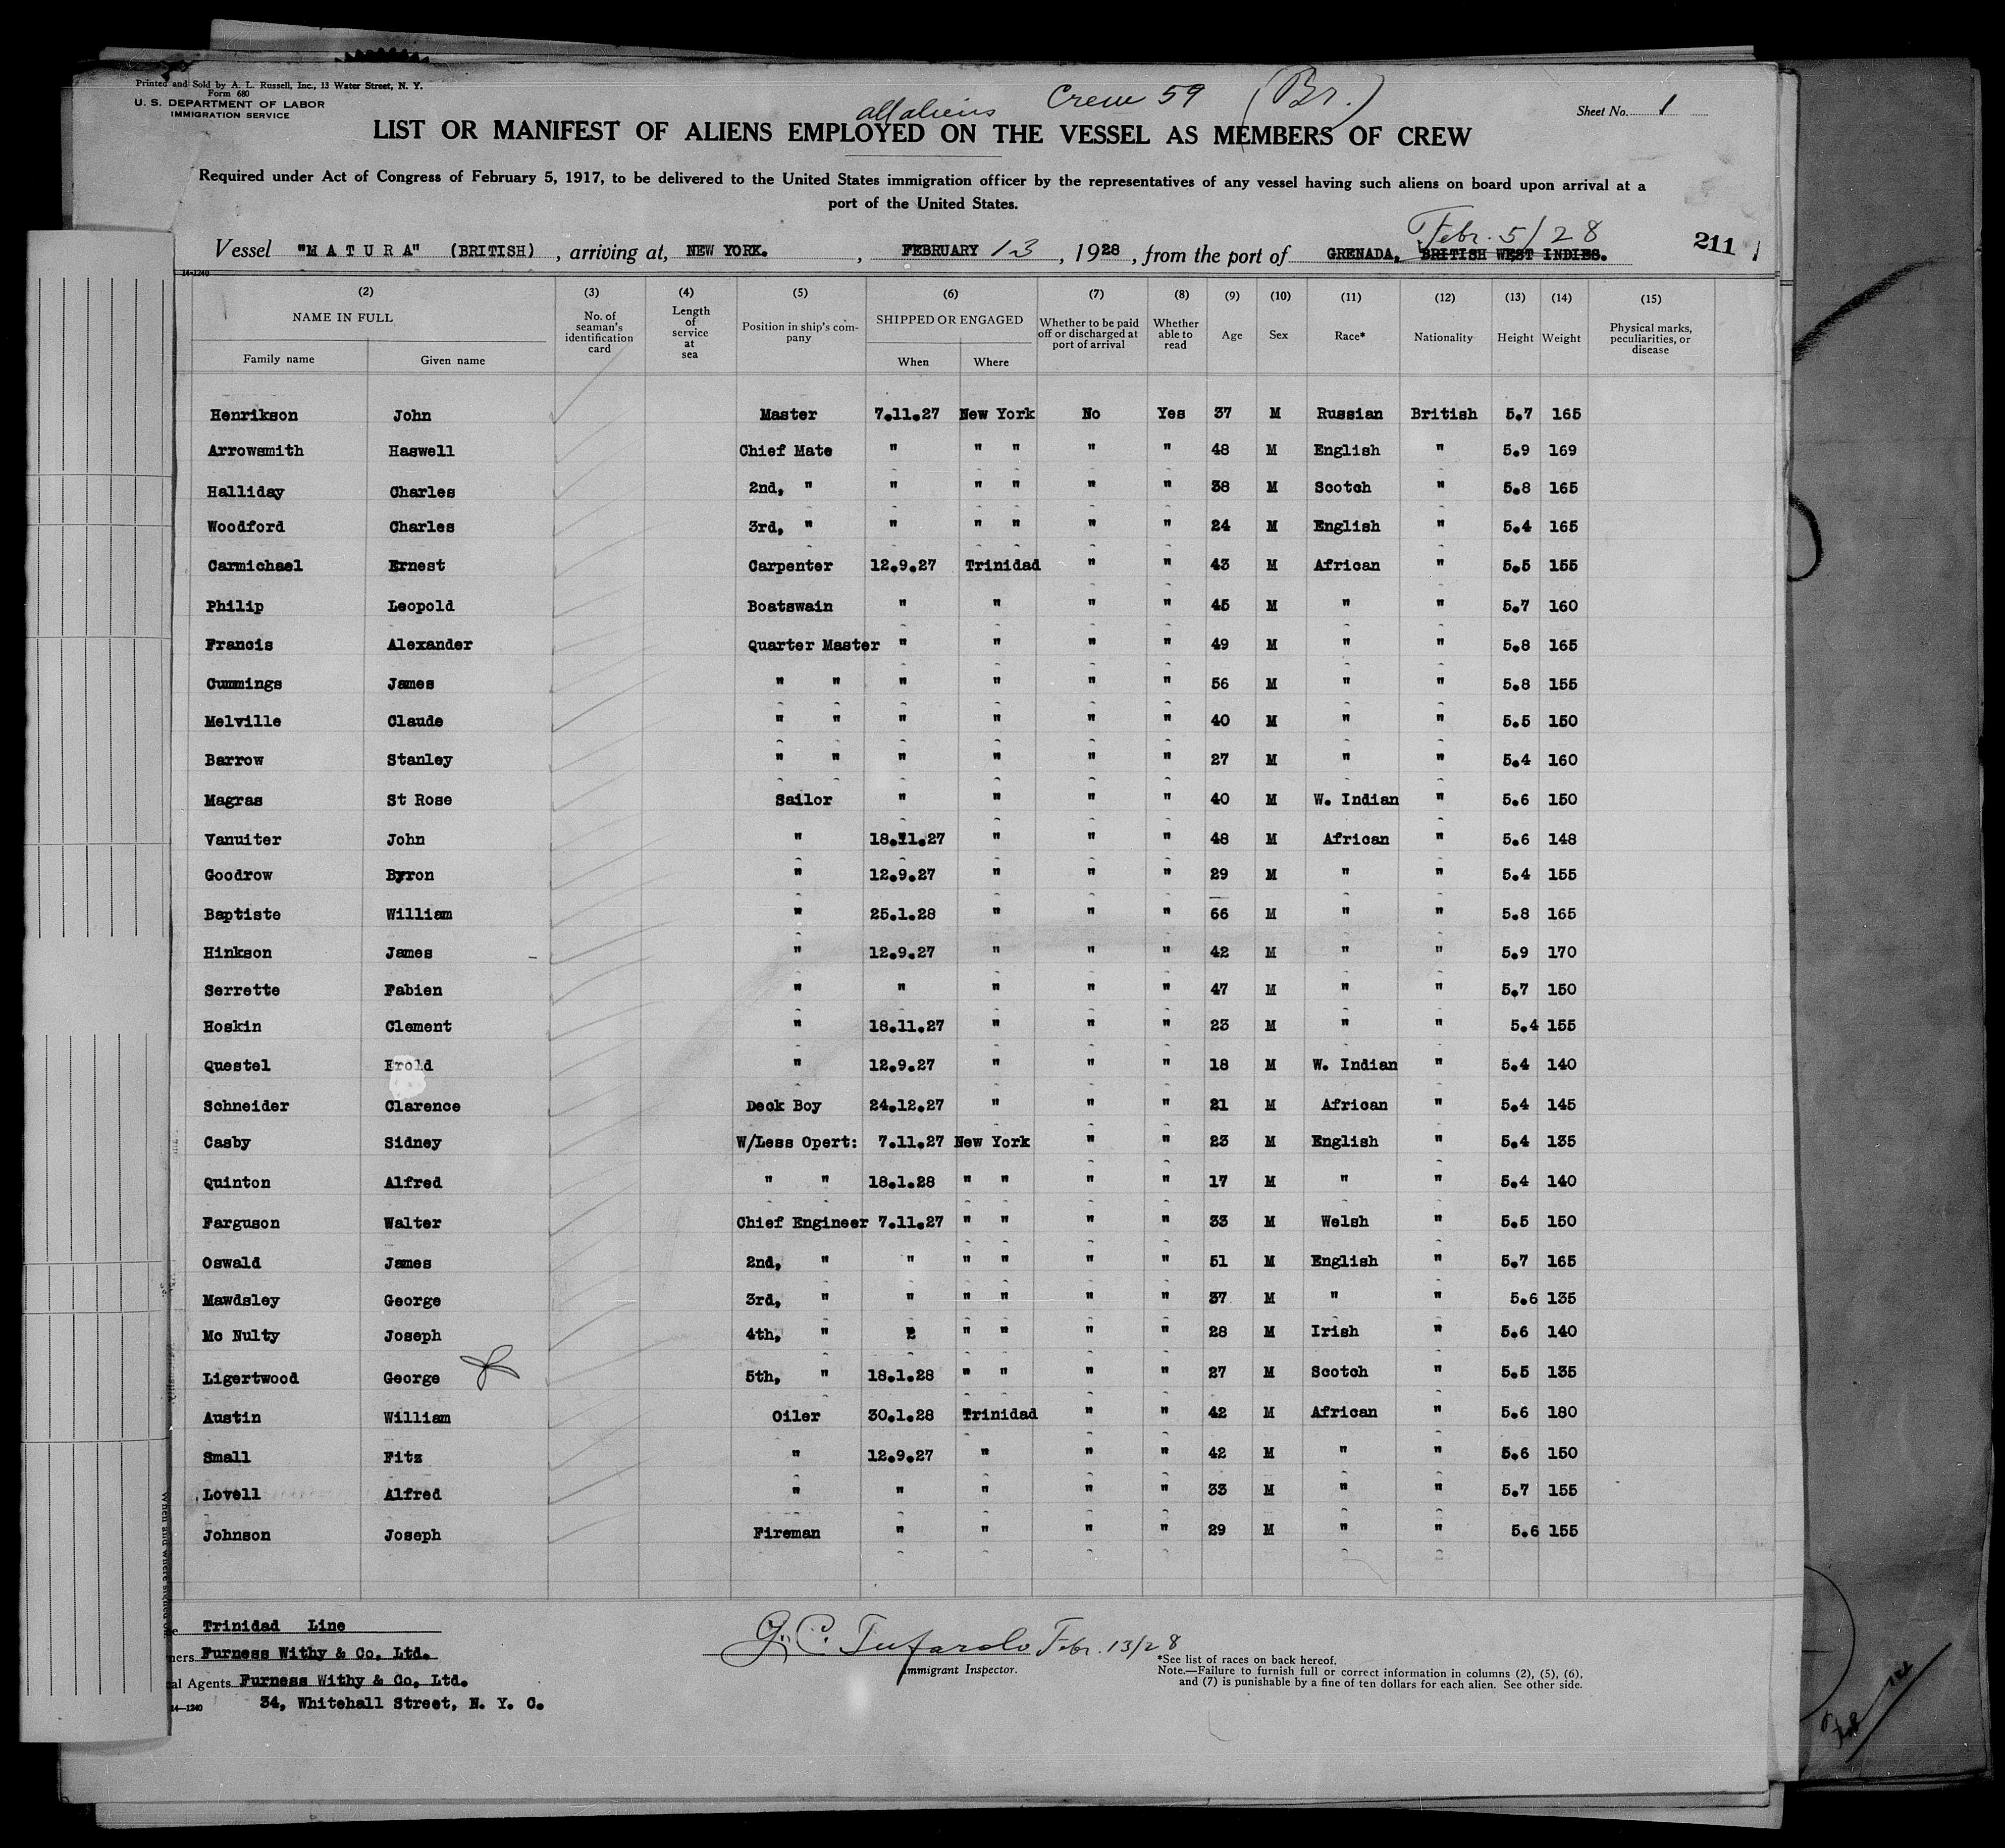 Printed and Sold by A. L. Russell, Inc., 13 Water Street, N. Y.
Form 680
U. S. DEPARTMENT OF LABOR
IMMIGRATION SERVICE
all aliens Crew 59 (Br.)
Sheet No. 1
LIST OR MANIFEST OF ALIENS EMPLOYED ON THE VESSEL AS MEMBERS OF CREW
Required under Act of Congress of February 5, 1917, to be delivered to the United States immigration officer by the representatives of any vessel having such aliens on board upon arrival at a
port of the United States.
Febr. 5/28
Vessel "M A T U R A" (BRITISH) , arriving at, NEW YORK. , FEBRUARY 13 , 1928 , from the port of GRENADA, BRITISH WEST INDIES. 211
14-1240
(2) (3) (4) (5) (6) (7) (8) (9) (10) (11) (12) (13) (14) (15)
NAME IN FULL No. of seaman's identification card Length of service at sea Position in ship's company SHIPPED OR ENGAGED Whether to be paid off or discharged at port of arrival Whether able to read Age Sex Race* Nationality Height Weight Physical marks, peculiarities, or disease
Family name Given name When Where
Henrikson John Master 7.11.27 New York No Yes 37 M Russian British 5.7 165
Arrowsmith Haswell Chief Mate " " " " " 48 M English " 5.9 169
Halliday Charles 2nd, " " " " " " 38 M Scotch " 5.8 165
Woodford Charles 3rd, " " " " " " 24 M English " 5.4 165
Carmichael Ernest Carpenter 12.9.27 Trinidad " " 43 M African " 5.5 155
Philip Leopold Boatswain " " " " 45 M " " 5.7 160
Francis Alexander Quarter Master " " " " 49 M " " 5.8 165
Cummings James " " " " " " 56 M " " 5.8 155
Melville Claude " " " " " " 40 M " " 5.5 150
Barrow Stanley " " " " " " 27 M " " 5.4 160
Magras St Rose Sailor " " " " 40 M W. Indian " 5.6 150
Vanuiter John " 18.11.27 " " " 48 M African " 5.6 148
Goodrow Byron " 12.9.27 " " " 29 M " " 5.4 155
Baptiste William " 25.1.28 " " " 66 M " " 5.8 165
Hinkson James " 12.9.27 " " " 42 M " " 5.9 170
Serrette Fabien " " " " " 47 M " " 5.7 150
Hoskin Clement " 18.11.27 " " " 23 M " " 5.4 155
Questel Erold " 12.9.27 " " " 18 M W. Indian " 5.4 140
Schneider Clarence Deck Boy 24.12.27 " " " 21 M African " 5.4 145
Casby Sidney W/Less Opert: 7.11.27 New York " " 23 M English " 5.4 135
Quinton Alfred " " 18.1.28 " " " " 17 M " " 5.4 140
Farguson Walter Chief Engineer 7.11.27 " " " " 33 M Welsh " 5.5 150
Oswald James 2nd, " " " " " " 51 M English " 5.7 165
Mawdsley George 3rd, " " " " " " 37 M " " 5.6 135
Mc Nulty Joseph 4th, " " " " " " 28 M Irish " 5.6 140
Ligertwood George 5th, " 18.1.28 " " " " 27 M Scotch " 5.5 135
Austin William Oiler 30.1.28 Trinidad " " 42 M African " 5.6 180
Small Fitz " 12.9.27 " " " 42 M " " 5.6 150
Lovell Alfred " " " " " 33 M " " 5.7 155
Johnson Joseph Fireman " " " " 29 M " " 5.6 155
Trinidad Line
Furness Withy & Co. Ltd.
Agents Furness Withy & Co. Ltd.
34, Whitehall Street, N. Y. C.
14-1240
G. C. Tufarolo Febr. 13/28
Immigrant Inspector.
*See list of races on back hereof.
Note.—Failure to furnish full or correct information in columns (2), (5), (6),
and (7) is punishable by a fine of ten dollars for each alien. See other side.